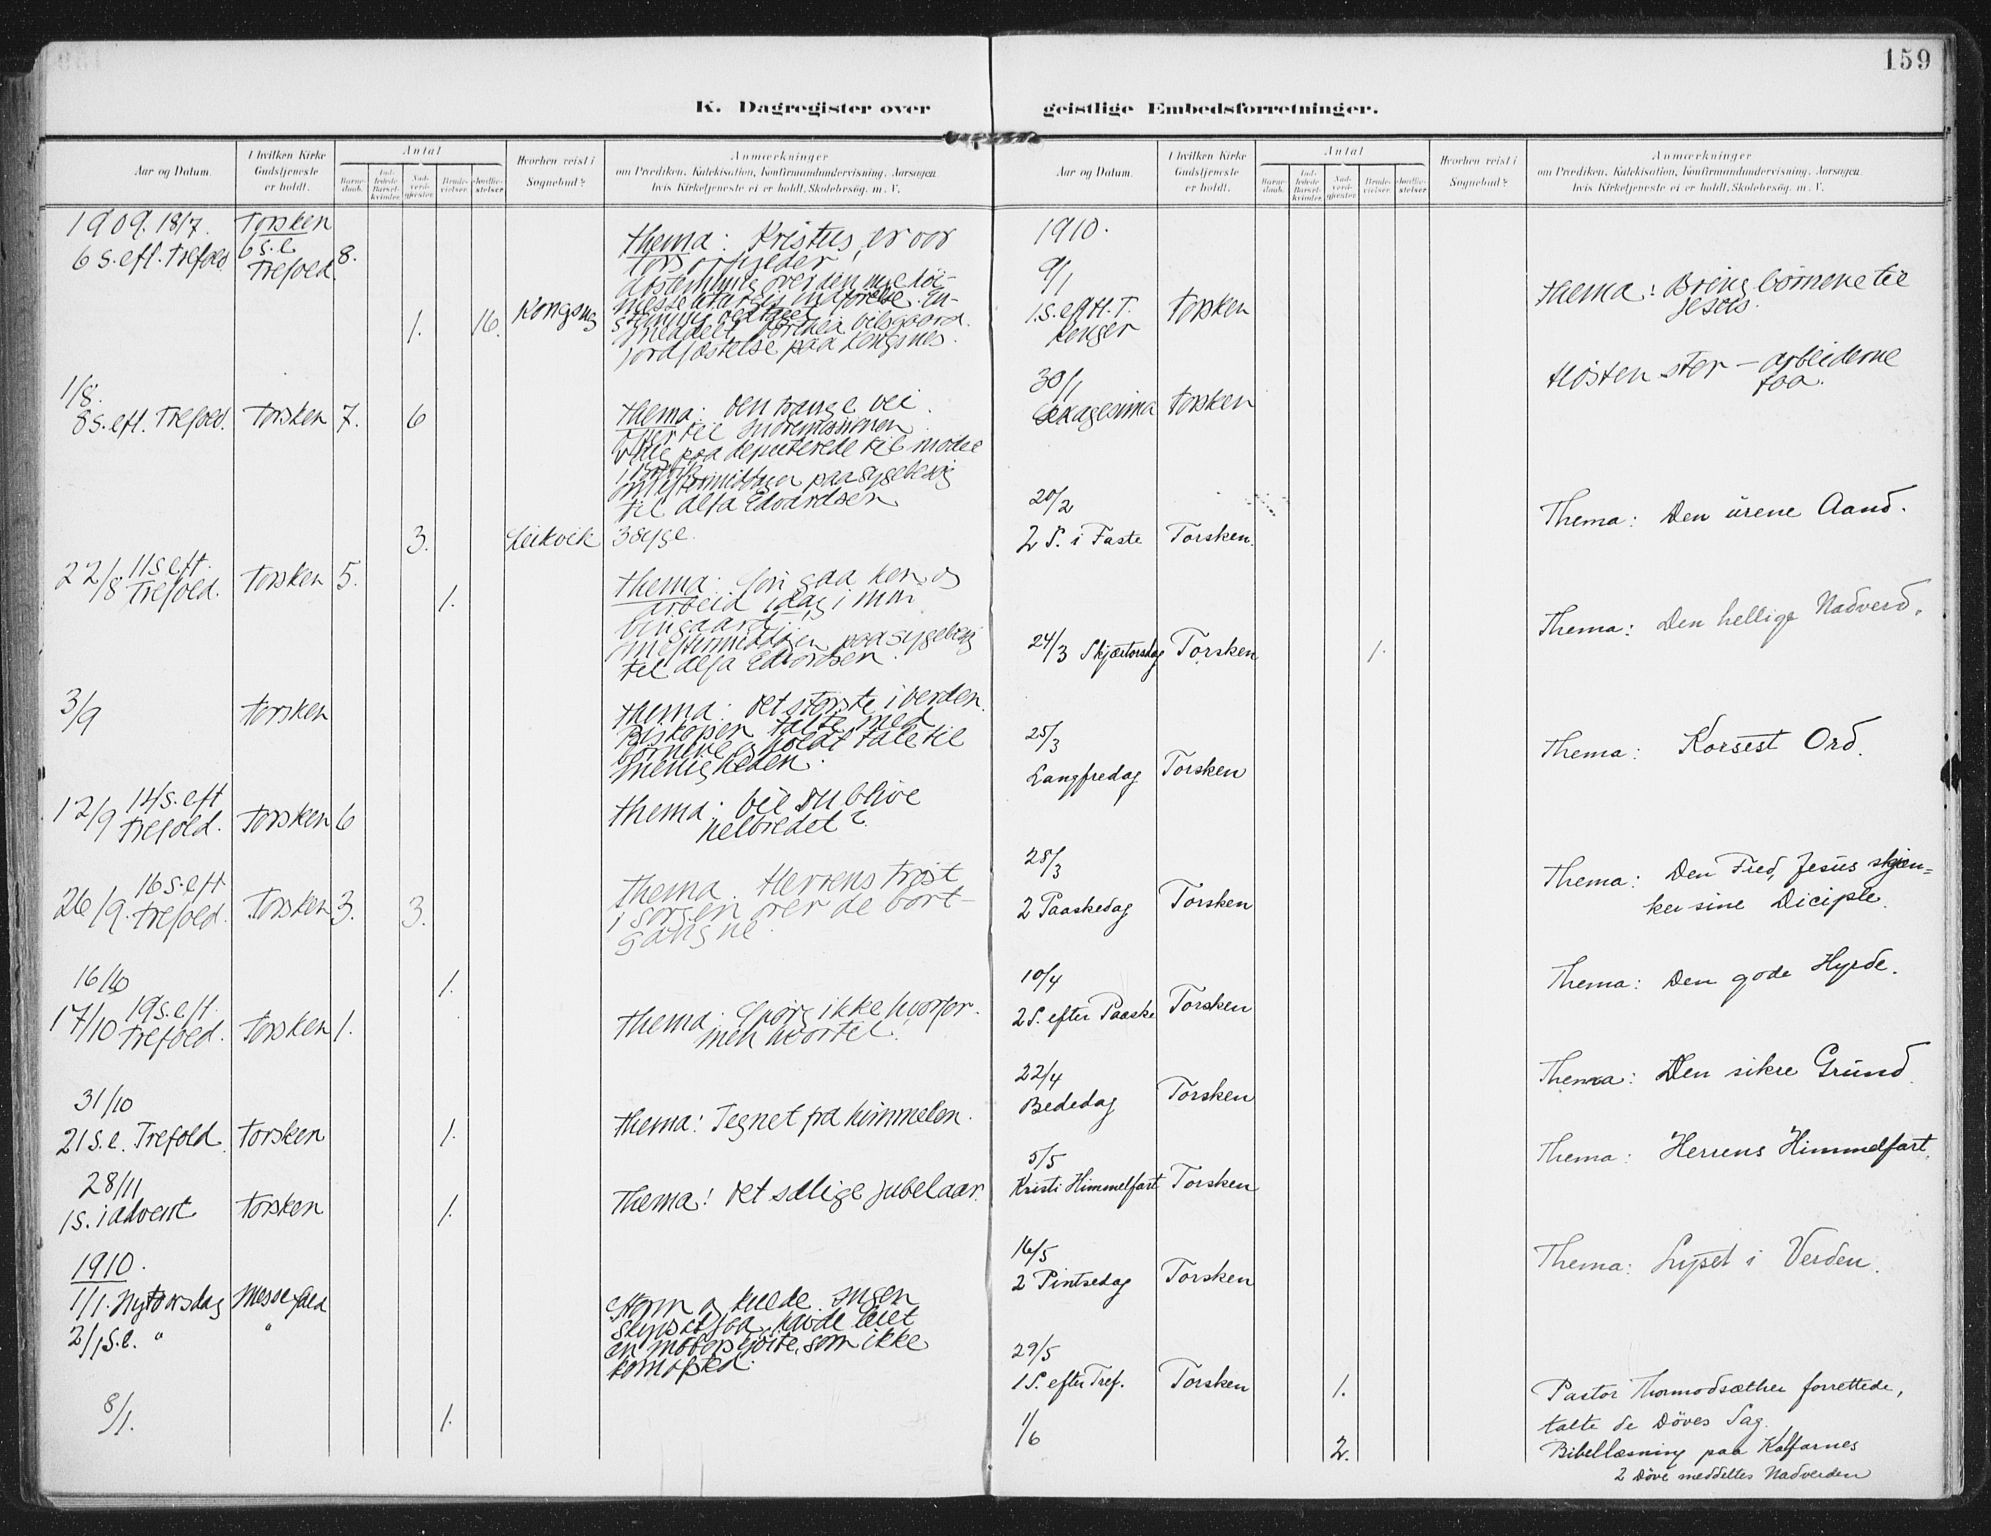 159
K. Dagregister over
geistlige Embedsforretninger.
Aar og Datum.
I hvilken Kirke Gudstjeneste er holdt.
Antal
Barnedaab.
Indledede Barselkvinder.
Nadverdgjester
Brudevielser.
Jordfæstelser
Hvorhen reist i Sognebud?
Anmærkninger
om Prædiken, Katekisation, Konfirmandundervisning, Aarsagen
hvis Kirketjeneste ei er holdt, Skolebesøg. m. V.
1909. 18/7. Torsken
6 s. eft. Trefold 6 s. e. Trefold. 8. Thema: Kristus er vor
1. 16. Kongsnes
jordfæstelse paa Kongsnes.
1/8.
8 s. eft. Trefold. Torsken 7. 6 Thema: Den trange vei.
valg paa deputerede til møde
paa sygebesøg
til Edvardsen
3. 3 syge.
22/8 11 s. eft. Trefold. Torsken 5. 1. Thema: gaa hen og
arbeid idag i min
vingaard
paa sygebesøg
til Edvardsen.
3/9 Torsken Thema: Det største i verden.
Biskopen talte med
børnene og holdt tale til
menigheden.
12/9 14 s. eft Trefold. Torsken 6 Thema: Vil du blive
helbredet?
26/9. 16 s. eft Trefold. Torsken 3. 3. Thema. Herrens trøst
i sorgen over de bort-
gangne.
16/10 1.
17/10 19 s. eft. Trefold. Torsken 1. Thema. Spørg ikke hvorfor.
men hvortil!
31/10
21 s. e. Trefold. Torsken 1. Thema: Tegnet fra himmelen.
28/11
1 s. i advent Torsken 1. Thema: Det salige jubelaar.
1910.
1/1. Nytaarsdag Messefald Storm og kulde. Ingen
2/1 s. e. " " skyds at faa, havde leiet
en motorskøite, som ikke
kom afsted.
8/1. 1.
Aar og Datum.
I hvilken Kirke Gudstjeneste er holdt.
Antal
Barnedaab.
Indledede Barselkvinder.
Nadverdgjester
Brudevielser.
Jordfæstelser
Hvorhen reist i Sognebud?
Anmærkninger
om Prædiken, Katekisation, Konfirmandundervisning, Aarsagen
hvis Kirketjeneste ei er holdt, Skolebesøg. m. V.
1910.
9/1
1. s. eft H. T. Konger Torsken Thema: Bring børnene til
Jesus.
30/1
Sexagesima Torsken Høsten stor – arbeiderne
faa.
20/2
2 S. i Faste Torsken. Thema: Den urene Aand.
24/3 Skjærtorsdag Torsken 1. Thema: Den hellige Nadverd.
25/3
Langfredag Torsken Thema: Korsest Ord.
28/3
2 Paaskedag Torsken Thema: Den Fred, Jesus skjæn-
ker sine Diciple.
10/4
2 S. efter Paaske Torsken Thema: Den gode Hyrde.
22/4
Bededag Torsken Thema: Den sikre Grund.
5/5
Kristi Himmelfart Torsken Thema: Herrens Himmelfart.
16/5
2 Pintsedag Torsken Thema: Lyset i Verden.
29/5
1 S. efter Tref. Torsken 1. Pastor Thormodsæther forrettede,
talte de Døves Sag.
1/6 2. Bibellæsning paa Kalfarnes
2 Døve meddeltes Nadverden